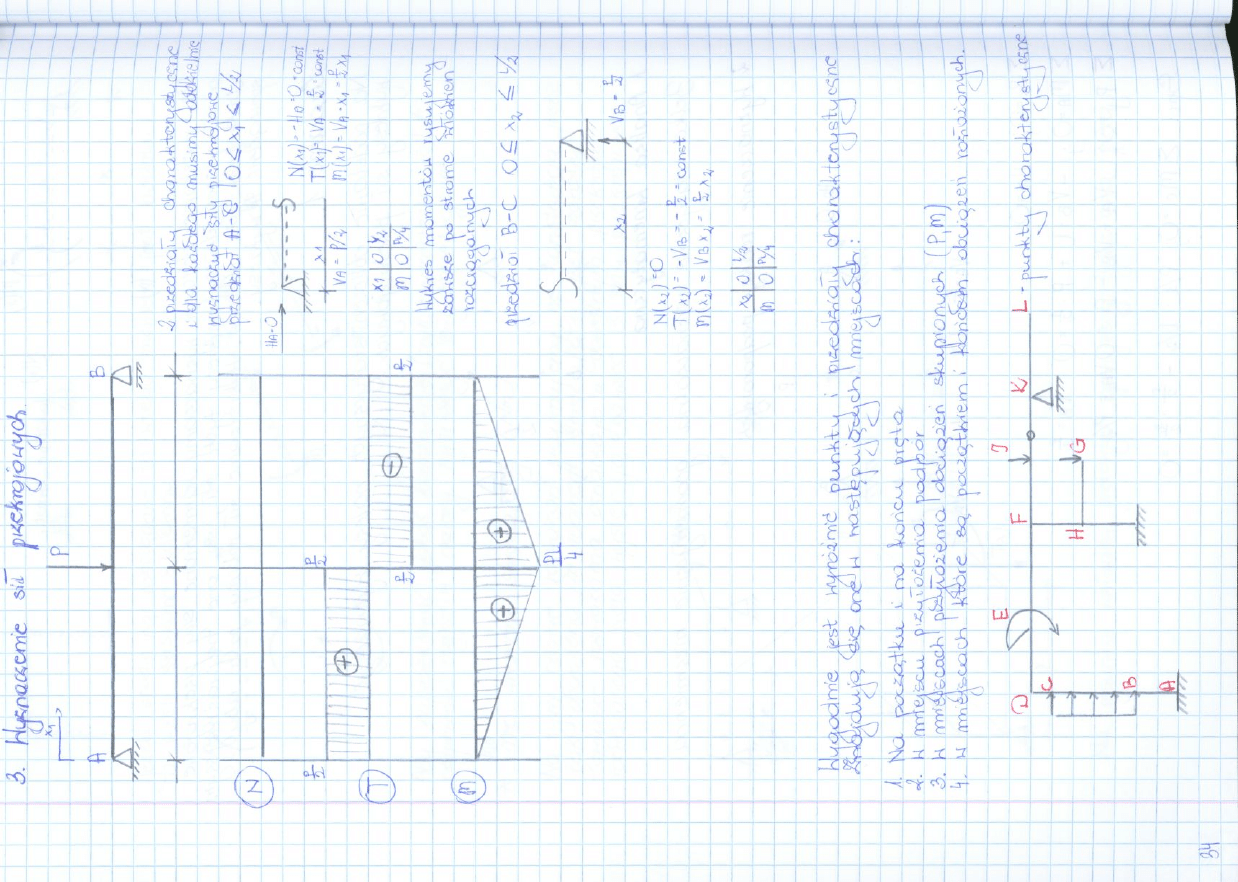 3. Wyznaczenie sił przekrojowych.
x1
P
A
B
2 przedziały charakterystyczne
i dla każdego musimy oddzielnie
wyznaczyć siły przekrojowe
przedział A-C 0 ≤ x1 ≤ L/2
HA=0
x1
VA = P/2
N(x1) = -HA = 0 = const
T(x1) = VA = P/2 = const
M(x1) = VA · x1 = P/2 x1
x1 | 0 | L/2
M | 0 | PL/4
Wykres momentów rysujemy
zawsze po stronie włókien
rozciąganych
przedział B-C 0 ≤ x2 ≤ L/2
x2
VB = P/2
N(x2) = 0
T(x2) = -VB = -P/2 = const
M(x2) = VB x2 = P/2 x2
x2 | 0 | L/2
M | 0 | PL/4
N
T
P/2
+
P/2
P/2
-
P/2
M
+
+
Pl/4
Wygodnie jest wyróżnić punkty i przedziały charakterystyczne
znajdują się one w następujących miejscach:
1. Na początku i na końcu pręta
2. w miejscu przyłożenia podpór
3. w miejscach przyłożenia obciążeń skupionych (P, M)
4. w miejscach które są początkiem i końcem obciążeń rozłożonych.
D
C
B
A
E
F
H
G
J
K
L
- punkty charakterystyczne
34